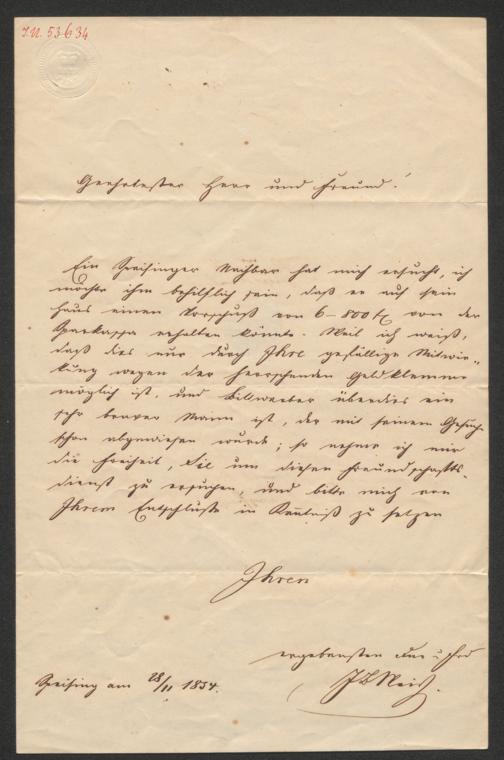 I.N. 53.634
Geehrtester Herr und Freund!
Ein Speisinger Nachbar hat mich ersucht, ich
möchte ihm behilflich sein, daß er auf sein
Haus einen Vorschuß von 6–800 f. von der
Sparkassa erhalten könnte. Weil ich weiß,
daß dies nur durch Ihre gefällige Mitwir-
kung wegen der herrschenden Geldklemme
möglich ist, und Billweber überdies ein
sehr braver Mann ist, der mit seinem Gesuch
schon abgewiesen wurde; so nehme ich mir
die Freiheit, Sie um diesen Freundschafts-
dienst zu ersuchen, und bitte mich von
Ihrem Entschluße in Kenntniß zu setzen
Ihren
ergebensten
Speising am 28/11 1854.